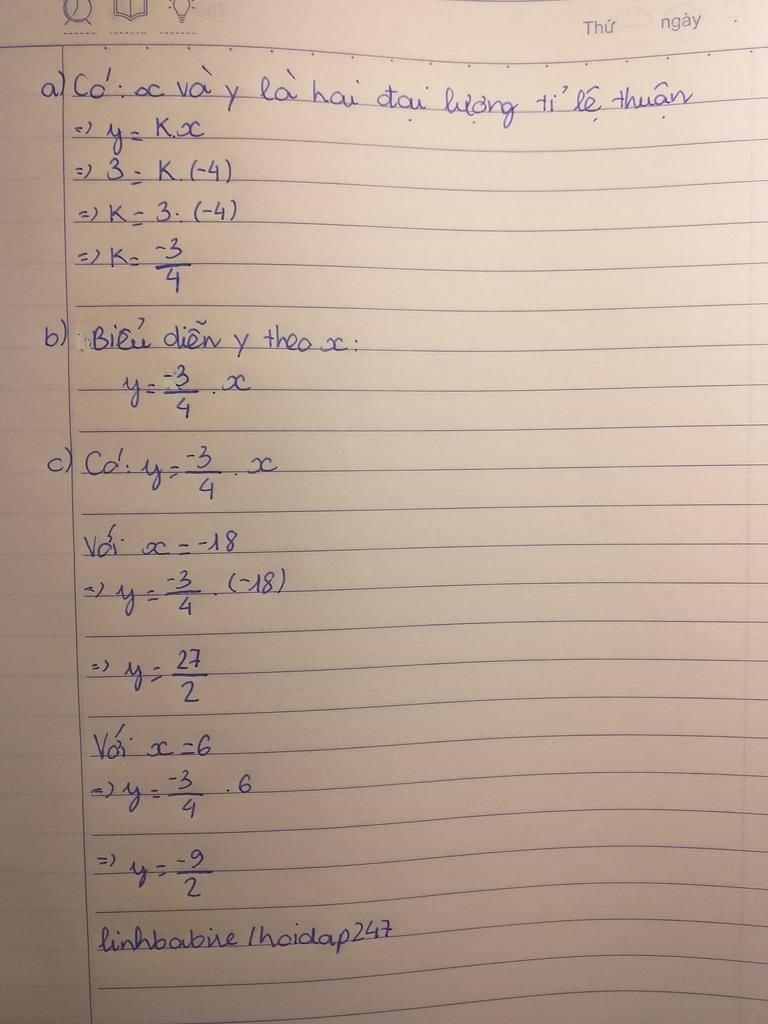 Thứ ngày .
a) Có: x và y là hai đại lượng tỉ lệ thuận
=> y = K.x
=> 3 = K.(-4)
=> K = 3.(-4)
=> K = -3/4
b) Biểu diễn y theo x:
y = -3/4 . x
c) Có: y = -3/4 . x
Với x = -18
=> y = -3/4 . (-18)
=> y = 27/2
Với x = 6
=> y = -3/4 . 6
=> y = -9/2
linhbabie /hoidap247